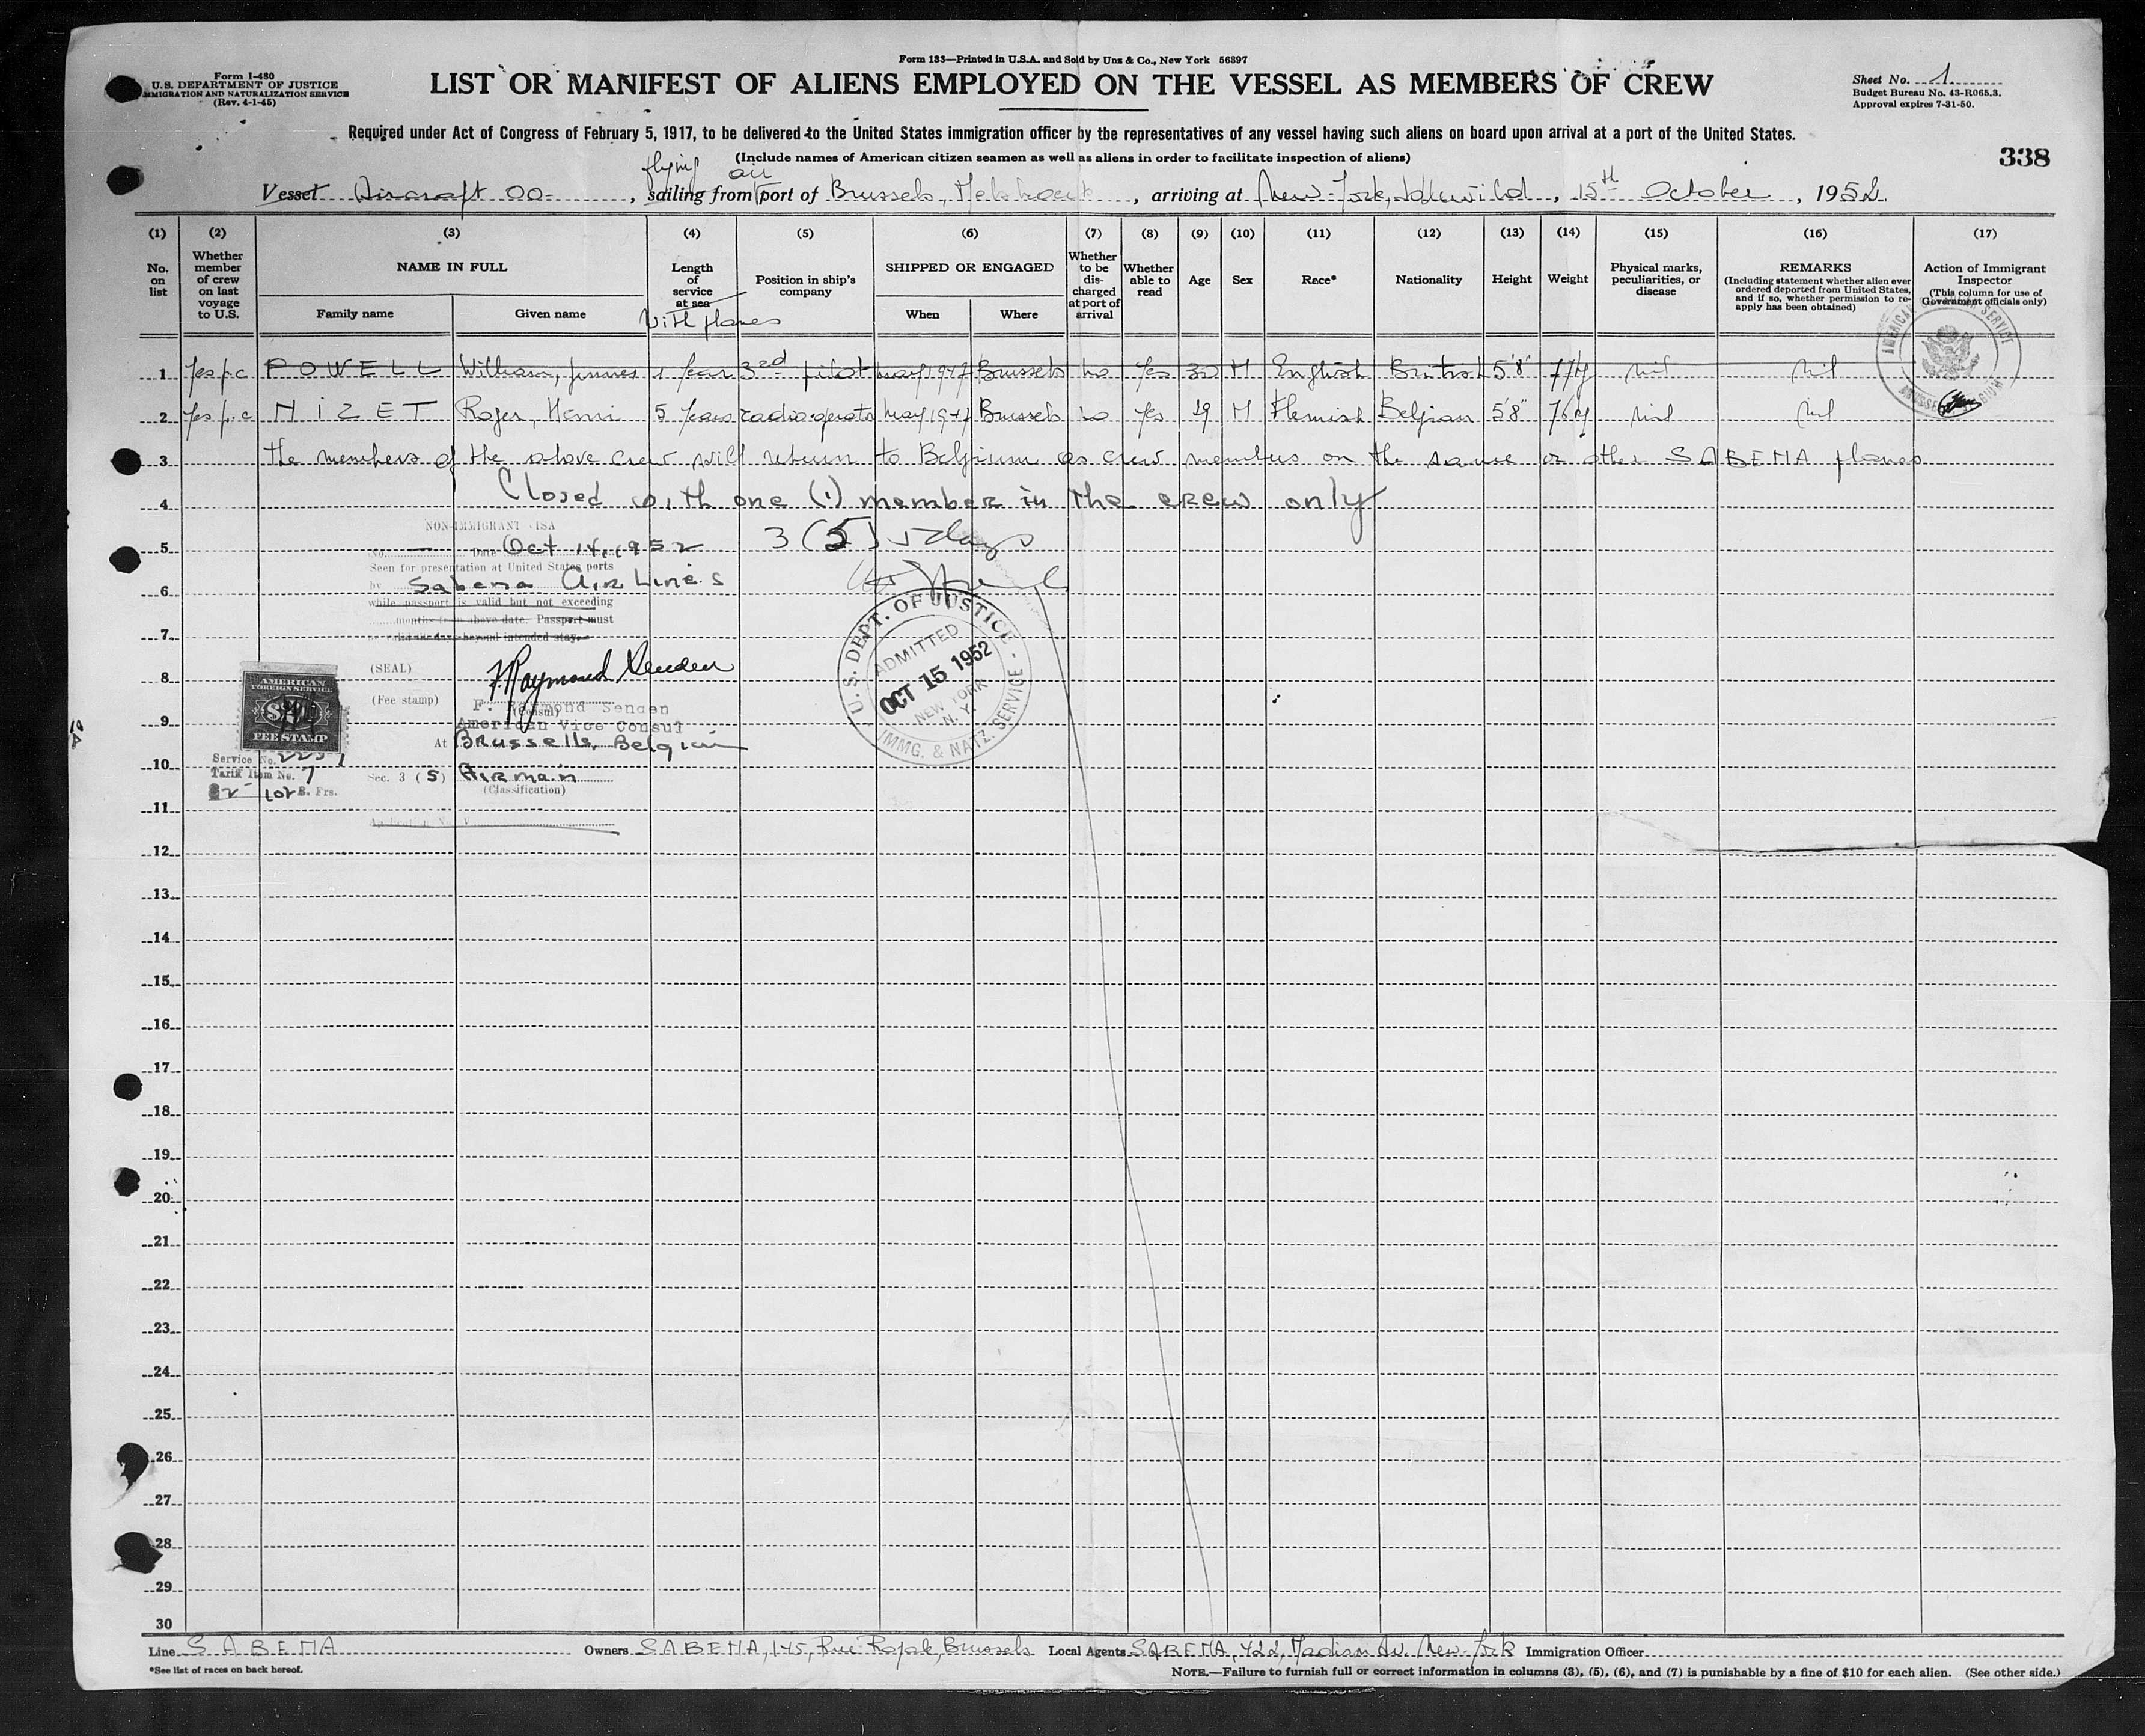 Form 133—Printed in U.S.A. and Sold by Unz & Co., New York 56397
Form I-480
U.S. DEPARTMENT OF JUSTICE
IMMIGRATION AND NATURALIZATION SERVICE
(Rev. 4-1-45)
LIST OR MANIFEST OF ALIENS EMPLOYED ON THE VESSEL AS MEMBERS OF CREW
Sheet No. 1
Budget Bureau No. 43-R065.3.
Approval expires 7-31-50.
Required under Act of Congress of February 5, 1917, to be delivered to the United States immigration officer by the representatives of any vessel having such aliens on board upon arrival at a port of the United States.
(Include names of American citizen seamen as well as aliens in order to facilitate inspection of aliens)
338
flying air
Vessel Aircraft OO- , sailing from port of Brussels, Melsbroek , arriving at New-York, Idlewild , 15th October , 1952
(1) (2) (3) (4) (5) (6) (7) (8) (9) (10) (11) (12) (13) (14) (15) (16) (17)
No. on list
Whether member of crew on last voyage to U.S.
NAME IN FULL
Family name
Given name
Length of service at sea
with planes
Position in ship's company
SHIPPED OR ENGAGED
When
Where
Whether to be discharged at port of arrival
Whether able to read
Age
Sex
Race*
Nationality
Height
Weight
Physical marks, peculiarities, or disease
REMARKS
(Including statement whether alien ever ordered deported from United States, and if so, whether permission to re-apply has been obtained)
Action of Immigrant Inspector
(This column for use of Government officials only)
AMERICAN SERVICE
BRUSSELS BELGIUM
1 Yes p.c POWELL William, 1 year 3rd pilot may 1947 Brussels no Yes 30 M English British 5'8" nil nil
2 Yes p.c NIZET Roger, Henri 5 years radio operator may 1947 Brussels no Yes 29 M Flemish Belgian 5'8" nil nil
3 The members of the above crew will return to Belgium as crew members on the same or other SABENA planes
4 Closed with one (1) member in the crew only
NON-IMMIGRANT VISA
5 No. — Date Oct 14, 1952 3 (5)
Seen for presentation at United States ports
6 by Sabena Air Lines
while passport is valid but not exceeding
months from above date. Passport must
7
(SEAL)
8 F. Raymond Senden
(Fee stamp)
F. Raymond Senden
(Consul)
9 American Vice Consul
At Brussells, Belgium
AMERICAN
FOREIGN SERVICE
FEE STAMP
Service No.
Tariff Item No. 7
10 Sec. 3 (5) Airman
(Classification)
$2 B. Frs.
U.S. DEPT. OF JUSTICE
ADMITTED
OCT 15 1952
NEW YORK
N.Y.
IMMG. & NATZ. SERVICE
11
12
13
14
15
16
17
18
19
20
21
22
23
24
25
26
27
28
29
30
Line SABENA Owners SABENA, 145, Rue Royale, Brussels Local Agents SABENA, 422, Madison Av. New-York Immigration Officer
*See list of races on back hereof.
NOTE.—Failure to furnish full or correct information in columns (3), (5), (6), and (7) is punishable by a fine of $10 for each alien. (See other side.)